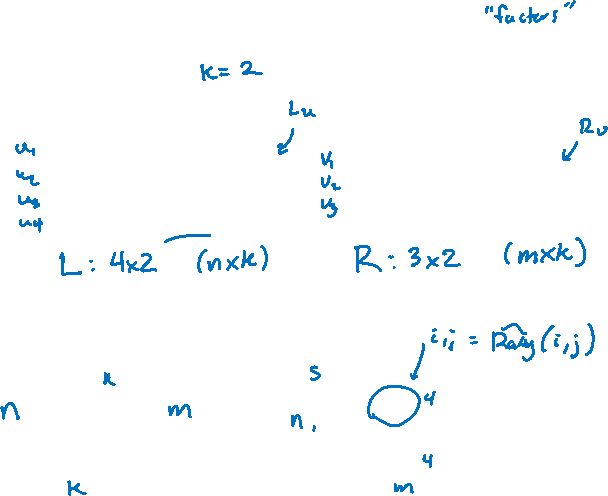 "factors"
k = 2
Lu
Rv
u1
u2
u3
u4
v1
v2
v3
L: 4x2 (nxk)
R: 3x2 (mxk)
i,j = Rating(i,j)
k
5
n
m
n,
4
4
k
m